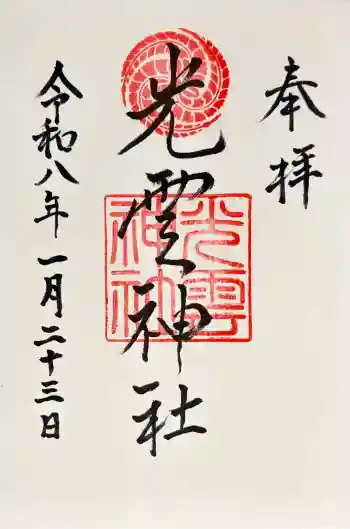 奉拝
光雲神社
光雲神社
令和八年一月二十三日